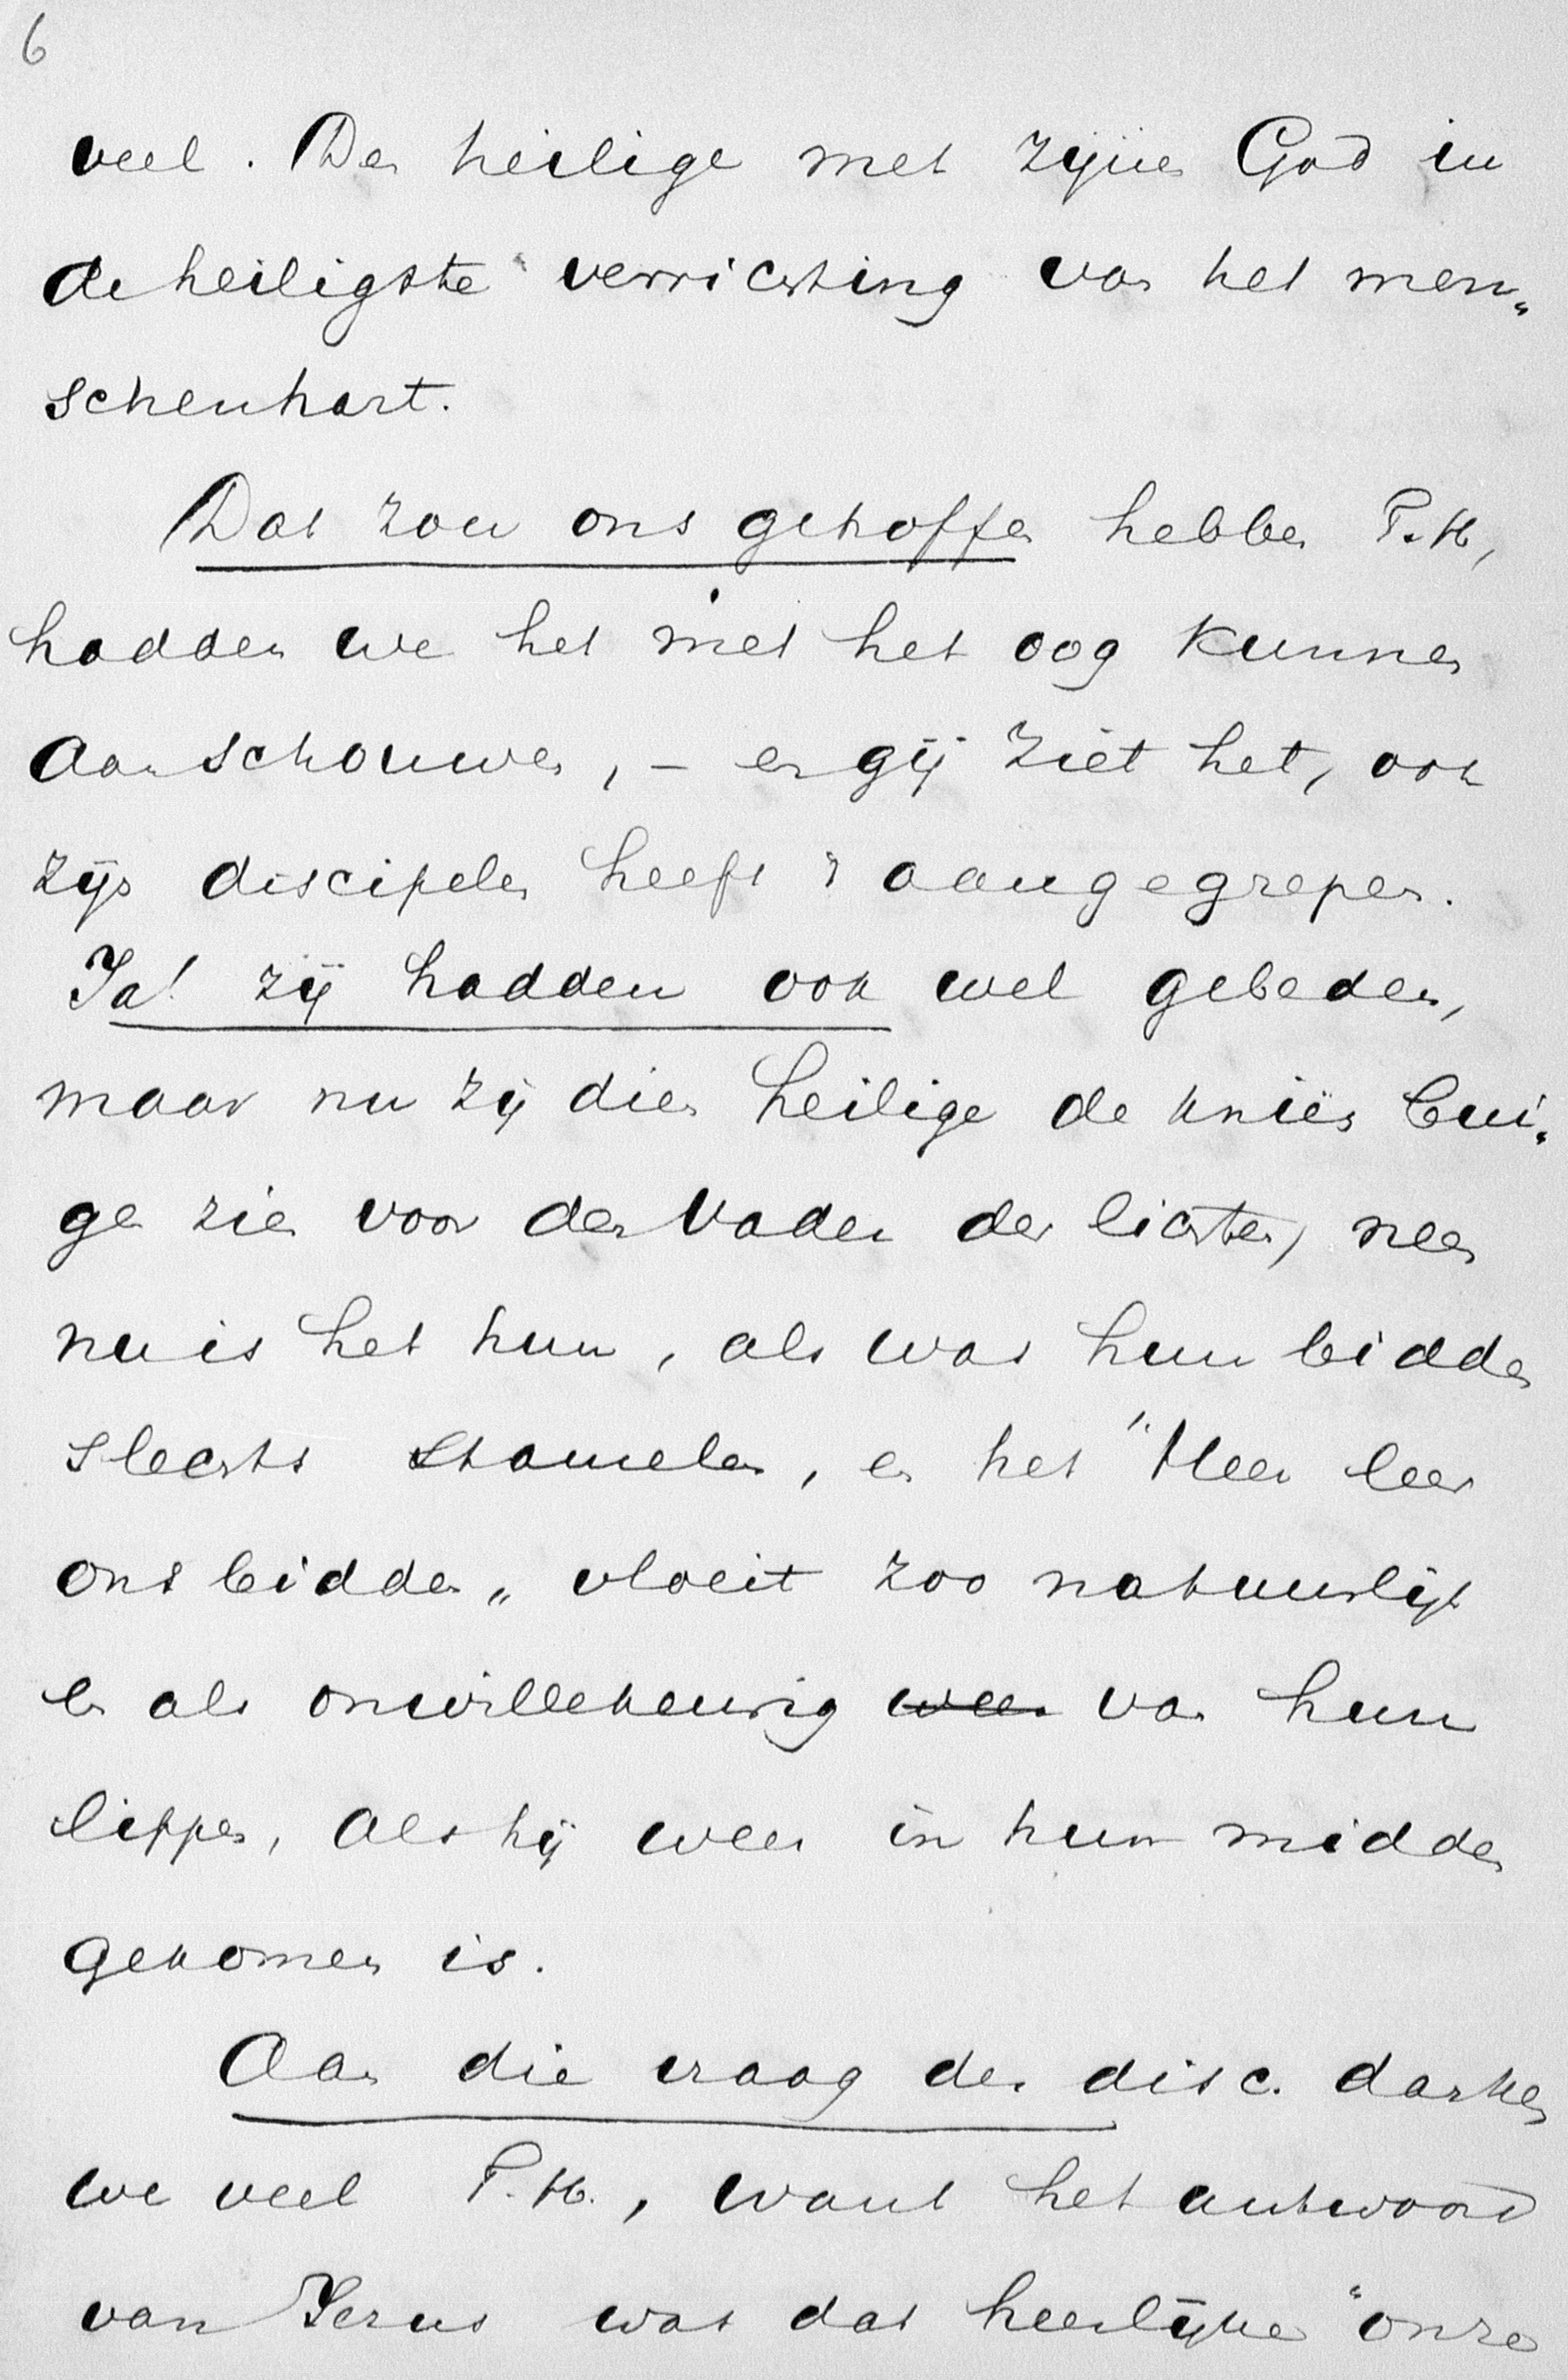 6
veel. Den heilige met zijnen God in
de heiligste verrichting van het men„
schenhart.
Dat zou ons getroffen hebben T. H,
hadden we het met het oog kunnen
aanschouwen, – en gij ziet het, ook
zijn discipelen heeft 't aangegrepen.
Ja! zij hadden ook wel gebeden,
maar nu zij dien heilige de knieën bui„
gen zien voor den Vader der lichten, neen
nu is het hun, als was hun bidden
slechts stamelen, en het "Heer leer
ons bidden„ vloeit zoo natuurlijk
en als onwillekeurig weer van hun
lippen, als hij weer in hun midden
gekomen is.
Aan die vraag der disc. danken
we veel T. H., want het antwoord
van Jezus was dat heerlijke "onze